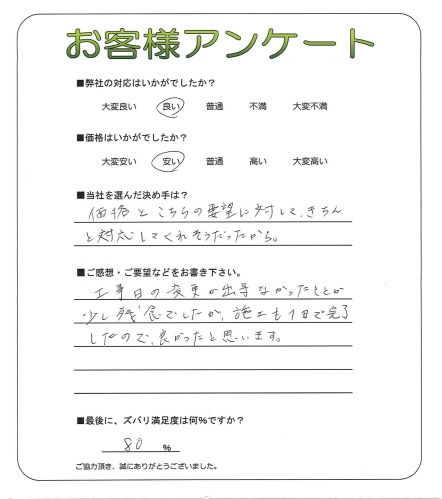 お客様アンケート
■弊社の対応はいかがでしたか?
大変良い 良い 普通 不満 大変不満
■価格はいかがでしたか?
大変安い 安い 普通 高い 大変高い
■当社を選んだ決め手は?
価格とこちらの要望に対して、きちん
と対応してくれそうだったから。
■ご感想・ご要望などをお書き下さい。
工事日の変更が出来なかったことが
少し残念でしたが、施工も1日で完了
したので、良かったと思います。
■最後に、ズバリ満足度は何%ですか?
80 %
ご協力頂き、誠にありがとうございました。